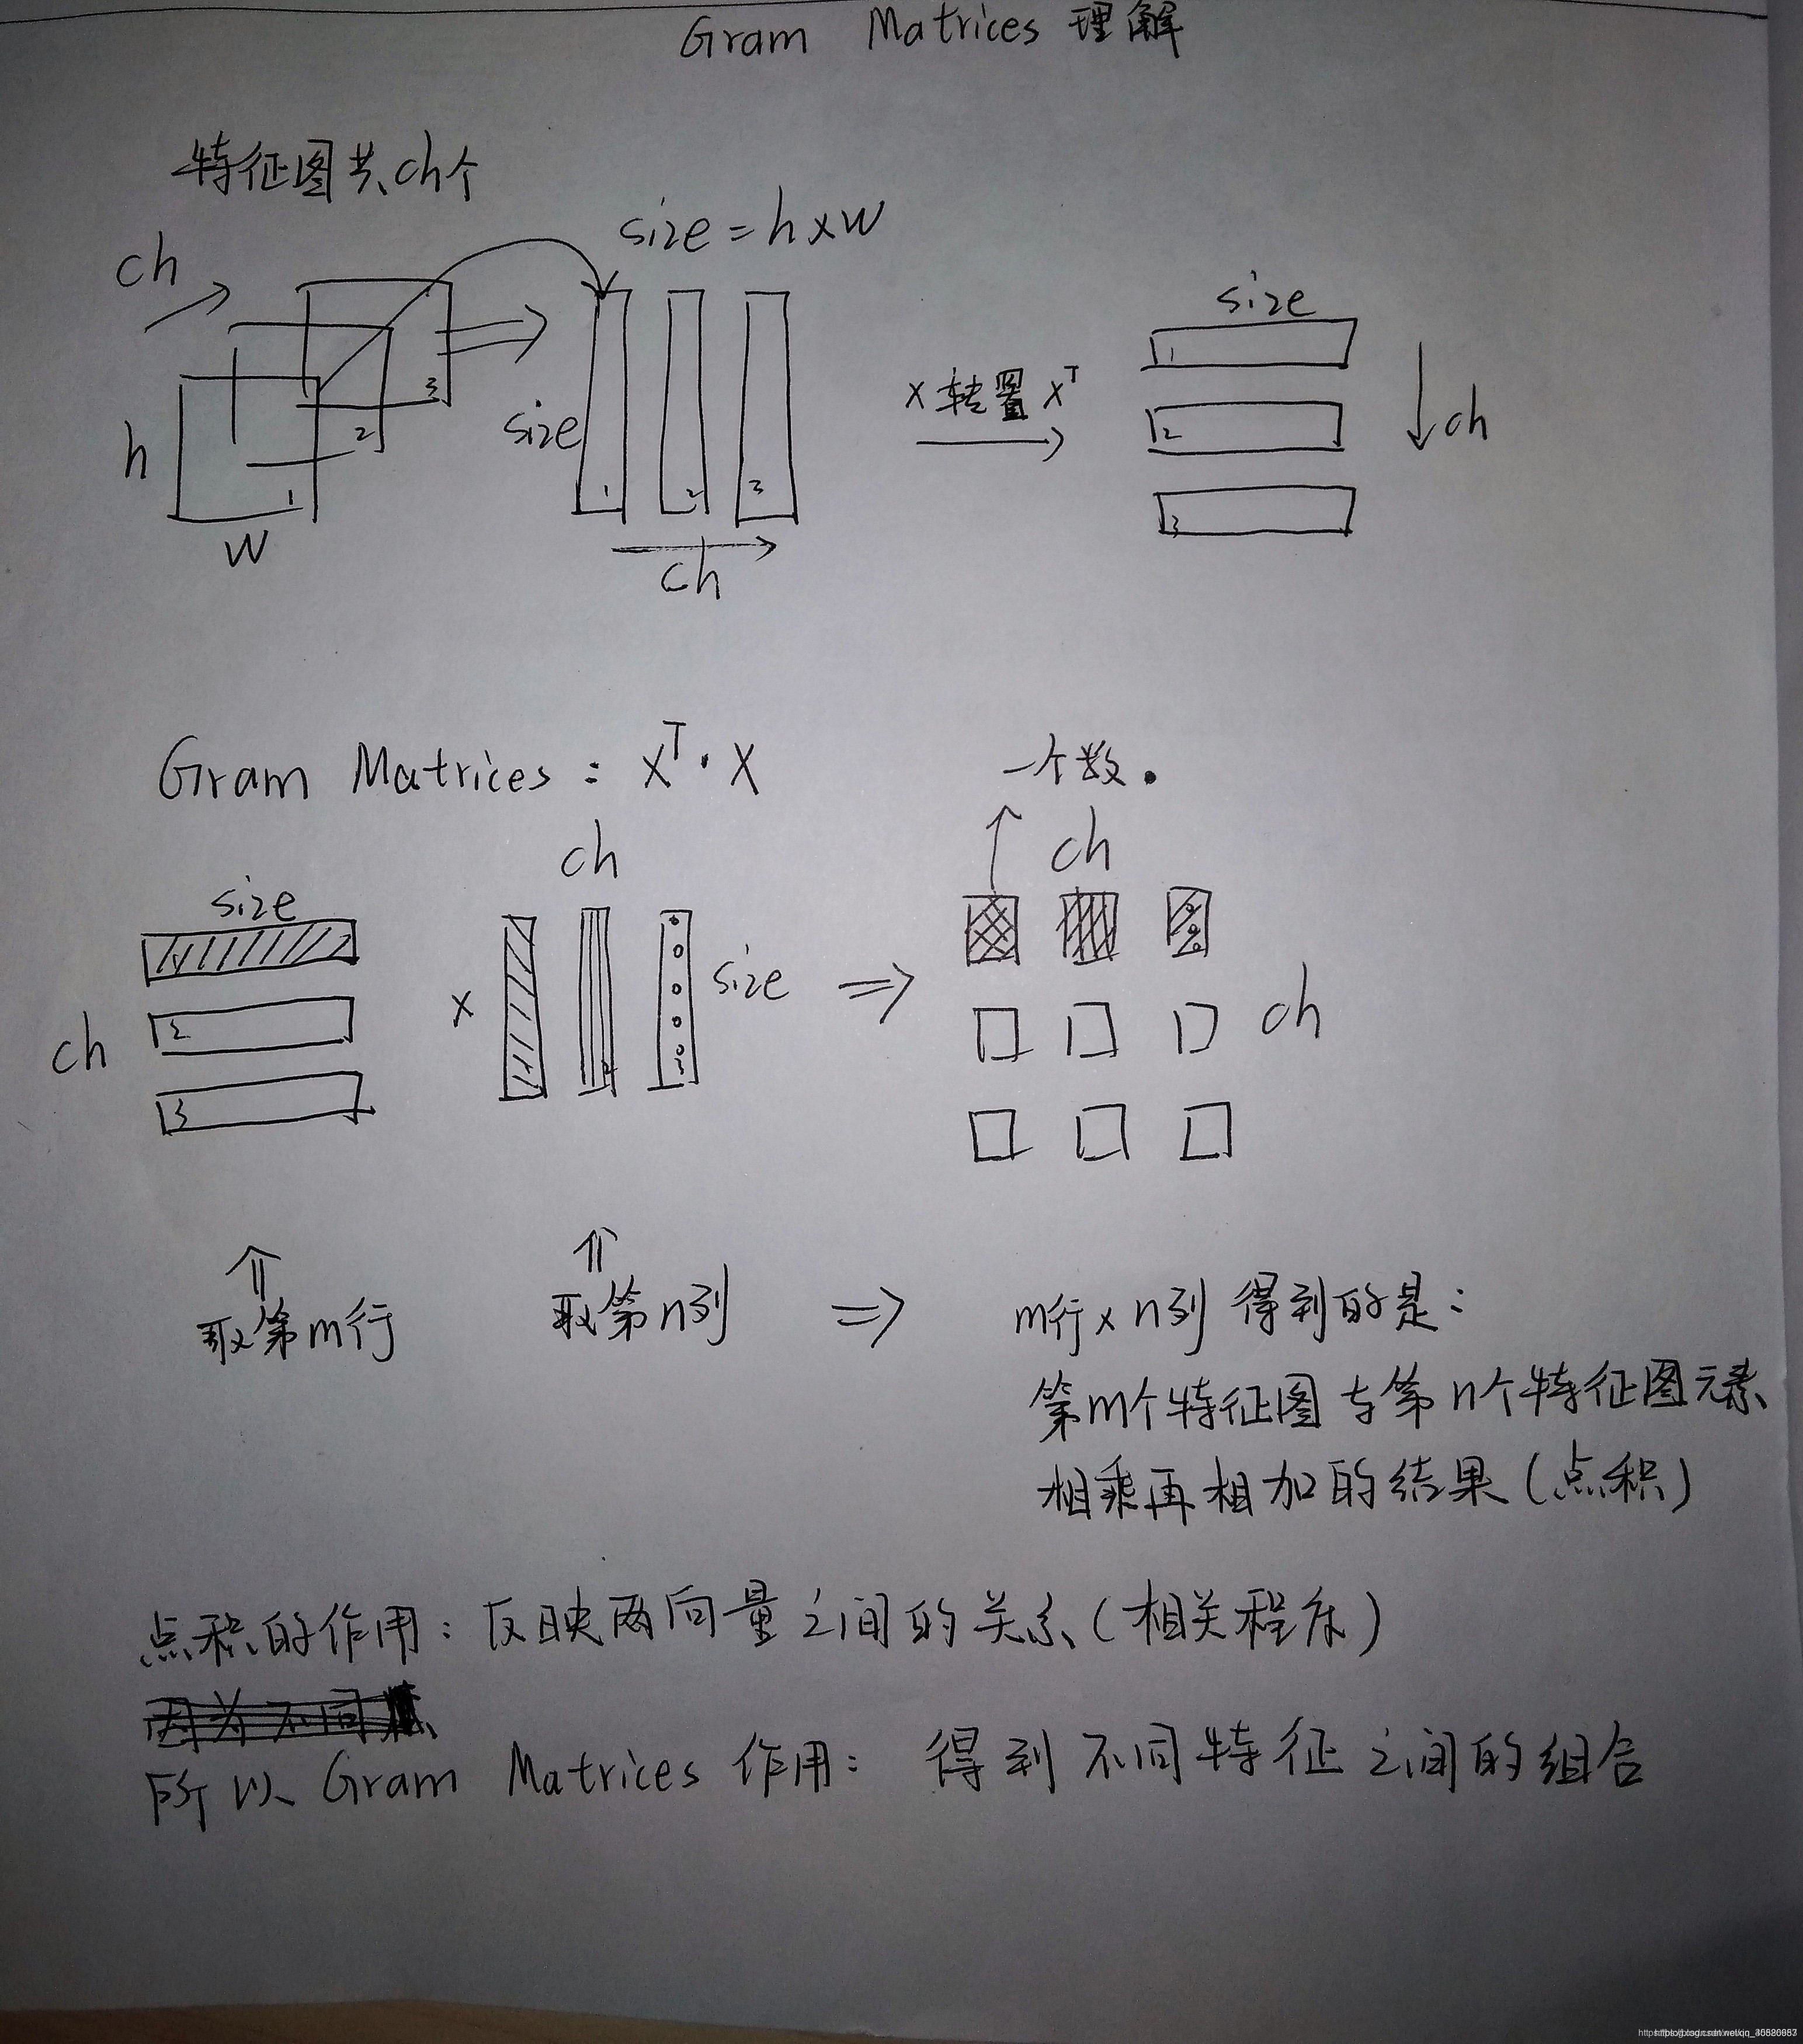 Gram Matrices 理解
特征图共ch个
size = h x w
ch
size
1
2
3
h
size
x 转置 xᵀ
1
2
3
ch
1
2
3
w
ch
Gram Matrices : xᵀ · x
一个数.
ch
ch
size
ch
2
3
x
2
3
size
ch
取第m行
取第n列
m行 x n列 得到的是:
第m个特征图与第n个特征图元素
相乘再相加的结果(点积)
点积的作用: 反映两向量之间的关系(相关程度)
因为不同
所以 Gram Matrices 作用: 得到不同特征之间的组合